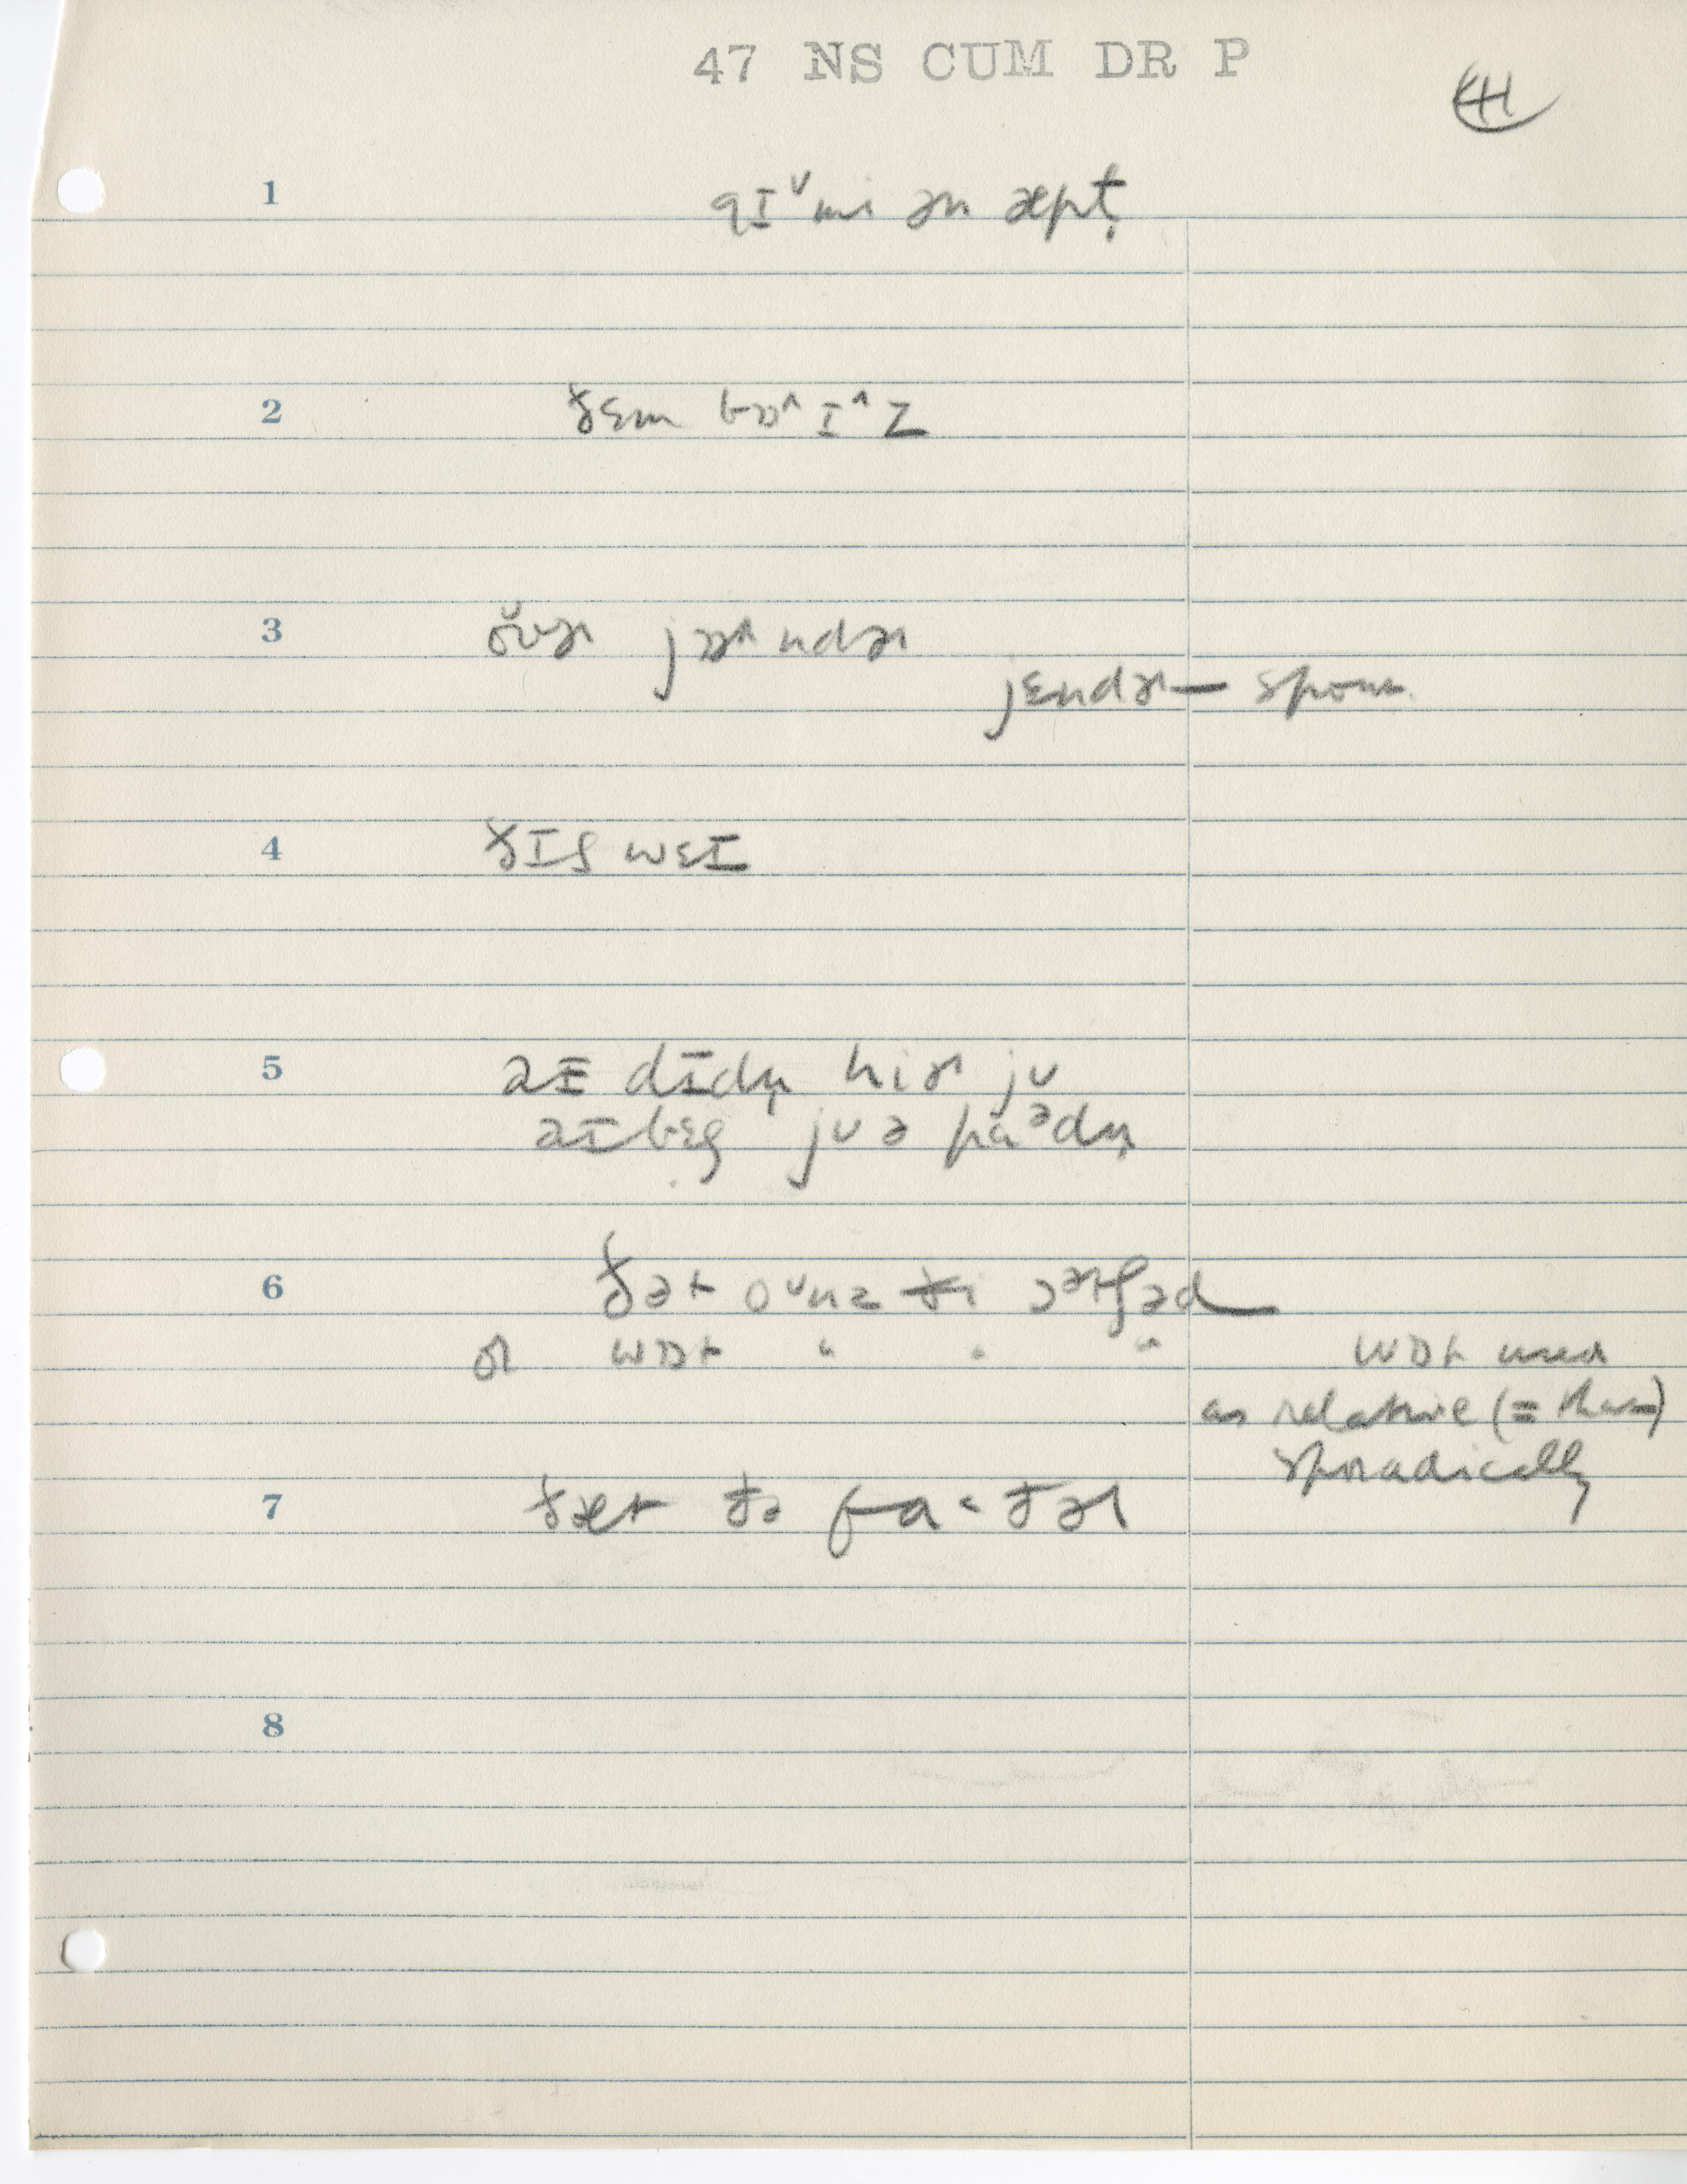 47 NS CUM DR P
1 gɪˇmi ən æpɫ̣
2 ðɛm bɔ^ɪ^z
3 oˇvɚ jɒ^ndɚ
jɛndɚ — spon.
4 ðɪʃ wɛɪ
5 aɪ dɪdṇ hiɚ ju
aɪ bɛg ju ə pɑᵊdṇ
6 ðət oˇnz ði
or wɒt " " "
wɒt used
as relative (= that)
sporadically
7 ðæt ðə fa˂ðɚ
8